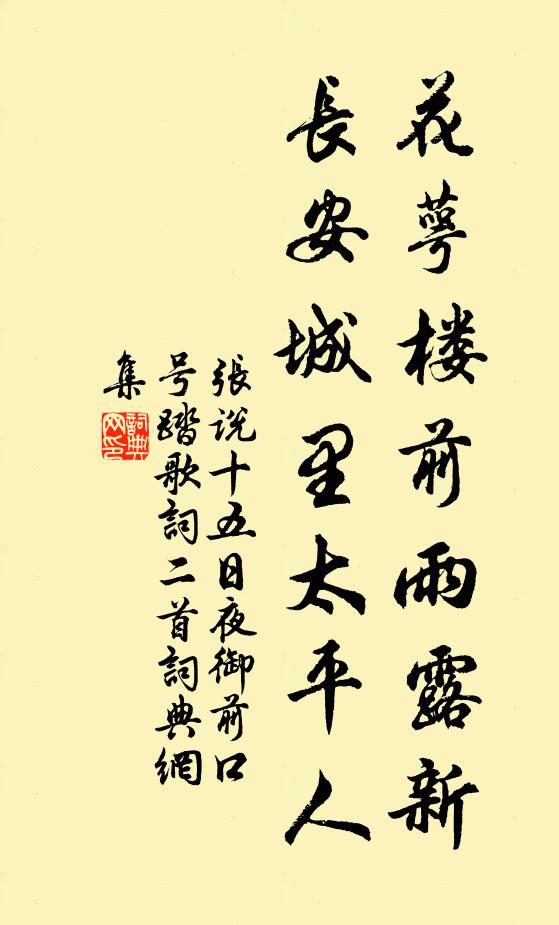 花萼楼前雨露新
長安城里太平人
張说十五日夜御前口
号踏歌詞二首詞典網
集
詞典网印